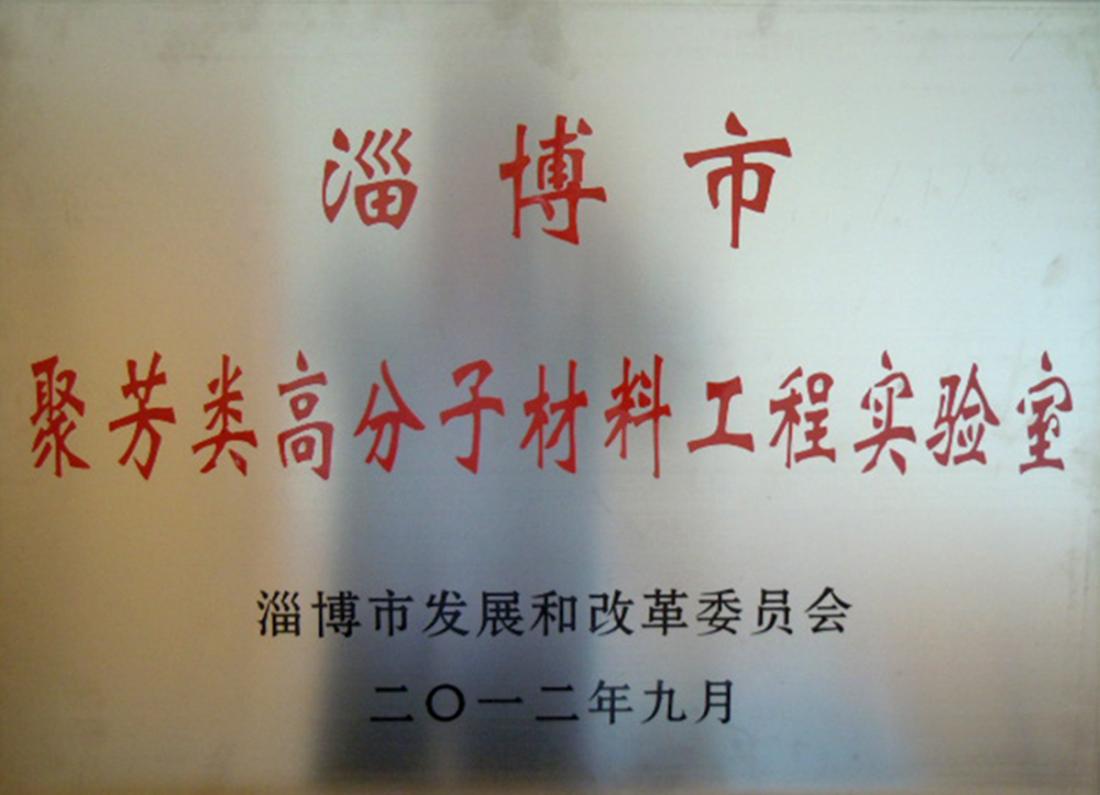 淄博市
聚芳类高分子材料工程实验室
淄博市发展和改革委员会
二〇一二年九月